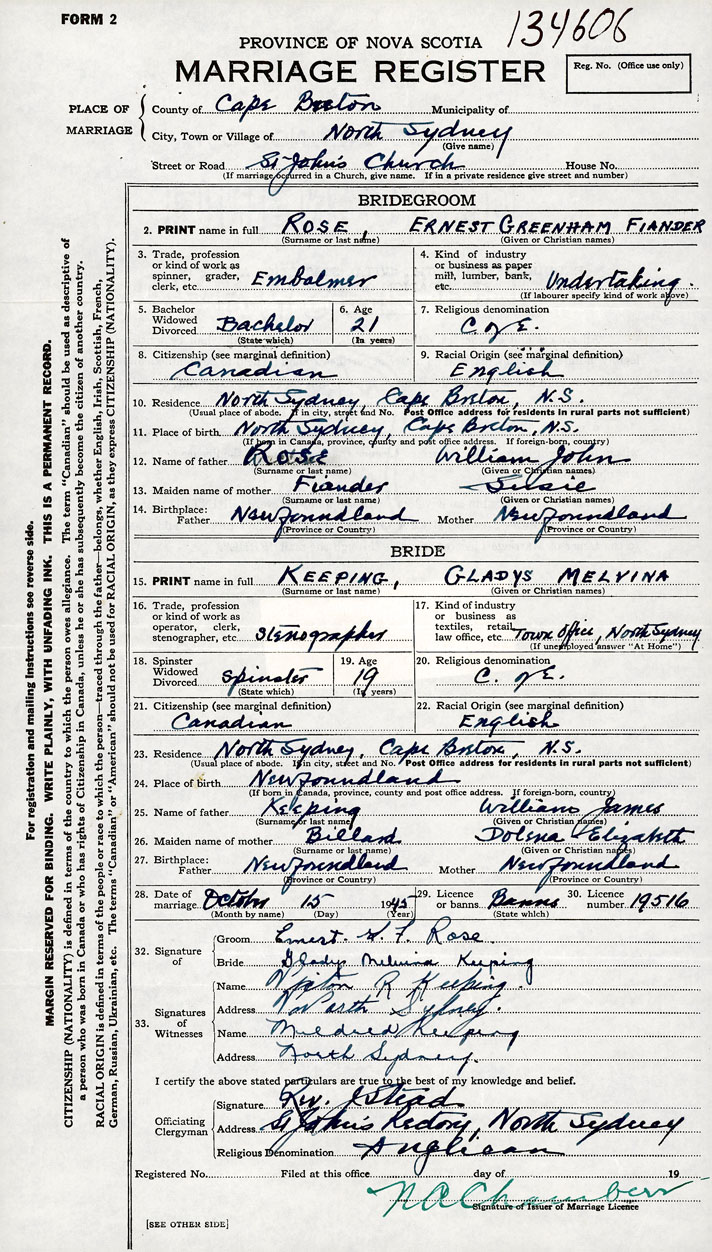 FORM 2
134606
PROVINCE OF NOVA SCOTIA
MARRIAGE REGISTER
Reg. No. (Office use only)
PLACE OF MARRIAGE
County of Cape Breton Municipality of
City, Town or Village of North Sydney
(Give name)
Street or Road St John's Church House No.
(If marriage occurred in a Church, give name. If in a private residence give street and number)
BRIDEGROOM
2. PRINT name in full ROSE, ERNEST GREENHAM FIANDER
(Surname or last name) (Given or Christian names)
3. Trade, profession or kind of work as spinner, grader, clerk, etc. Embalmer
4. Kind of industry or business as paper mill, lumber, bank, etc. Undertaking.
(If labourer specify kind of work above)
5. Bachelor Widowed Divorced Bachelor
(State which)
6. Age 21
(In years)
7. Religious denomination C. of E.
8. Citizenship (see marginal definition) Canadian
9. Racial Origin (see marginal definition) English
10. Residence North Sydney, Cape Breton, N.S.
(Usual place of abode. If in city, street and No. Post Office address for residents in rural parts not sufficient)
11. Place of birth North Sydney, Cape Breton, N.S.
(If born in Canada, province, county and post office address. If foreign-born, country)
12. Name of father Rose William John
(Surname or last name) (Given or Christian names)
13. Maiden name of mother Fiander Susie
(Surname or last name) (Given or Christian names)
14. Birthplace: Father Newfoundland Mother Newfoundland
(Province or Country) (Province or Country)
BRIDE
15. PRINT name in full KEEPING, GLADYS MELVINA
(Surname or last name) (Given or Christian names)
16. Trade, profession or kind of work as operator, clerk, stenographer, etc. Stenographer
17. Kind of industry or business as textiles, retail, law office, etc. Town Office, North Sydney
(If unemployed answer "At Home")
18. Spinster Widowed Divorced Spinster
(State which)
19. Age 19
(In years)
20. Religious denomination C. of E.
21. Citizenship (see marginal definition) Canadian
22. Racial Origin (see marginal definition) English
23. Residence North Sydney, Cape Breton, N.S.
(Usual place of abode. If in city, street and No. Post Office address for residents in rural parts not sufficient)
24. Place of birth Newfoundland
(If born in Canada, province, county and post office address. If foreign-born, country)
25. Name of father Keeping William James
(Surname or last name) (Given or Christian names)
26. Maiden name of mother Billard Dolena Elizabeth
(Surname or last name) (Given or Christian names)
27. Birthplace: Father Newfoundland Mother Newfoundland
(Province or Country) (Province or Country)
28. Date of marriage October 15 1945
(Month by name) (Day) (Year)
29. Licence or banns Banns
(State which)
30. Licence number 19516
32. Signature of
Groom Ernest G. F. Rose.
Bride Gladys Melvina Keeping
33. Signatures of Witnesses
Name R Keeping.
Address North Sydney.
Name Mildred Keeping
Address North Sydney.
I certify the above stated particulars are true to the best of my knowledge and belief.
Officiating Clergyman
Signature Rev. J Stead
Address St John's Rectory, North Sydney
Religious Denomination Anglican
Registered No. Filed at this office day of 19
N A Chambers
Signature of Issuer of Marriage Licence
[SEE OTHER SIDE]
For registration and mailing instructions see reverse side.
MARGIN RESERVED FOR BINDING. WRITE PLAINLY, WITH UNFADING INK. THIS IS A PERMANENT RECORD.
CITIZENSHIP (NATIONALITY) is defined in terms of the country to which the person owes allegiance. The term "Canadian" should be used as descriptive of
a person who was born in Canada or who has rights of Citizenship in Canada, unless he or she has subsequently become the citizen of another country.
RACIAL ORIGIN is defined in terms of the people or race to which the person—traced through the father—belongs, whether English, Irish, Scottish, French,
German, Russian, Ukrainian, etc. The terms "Canadian" or "American" should not be used for RACIAL ORIGIN, as they express CITIZENSHIP (NATIONALITY).